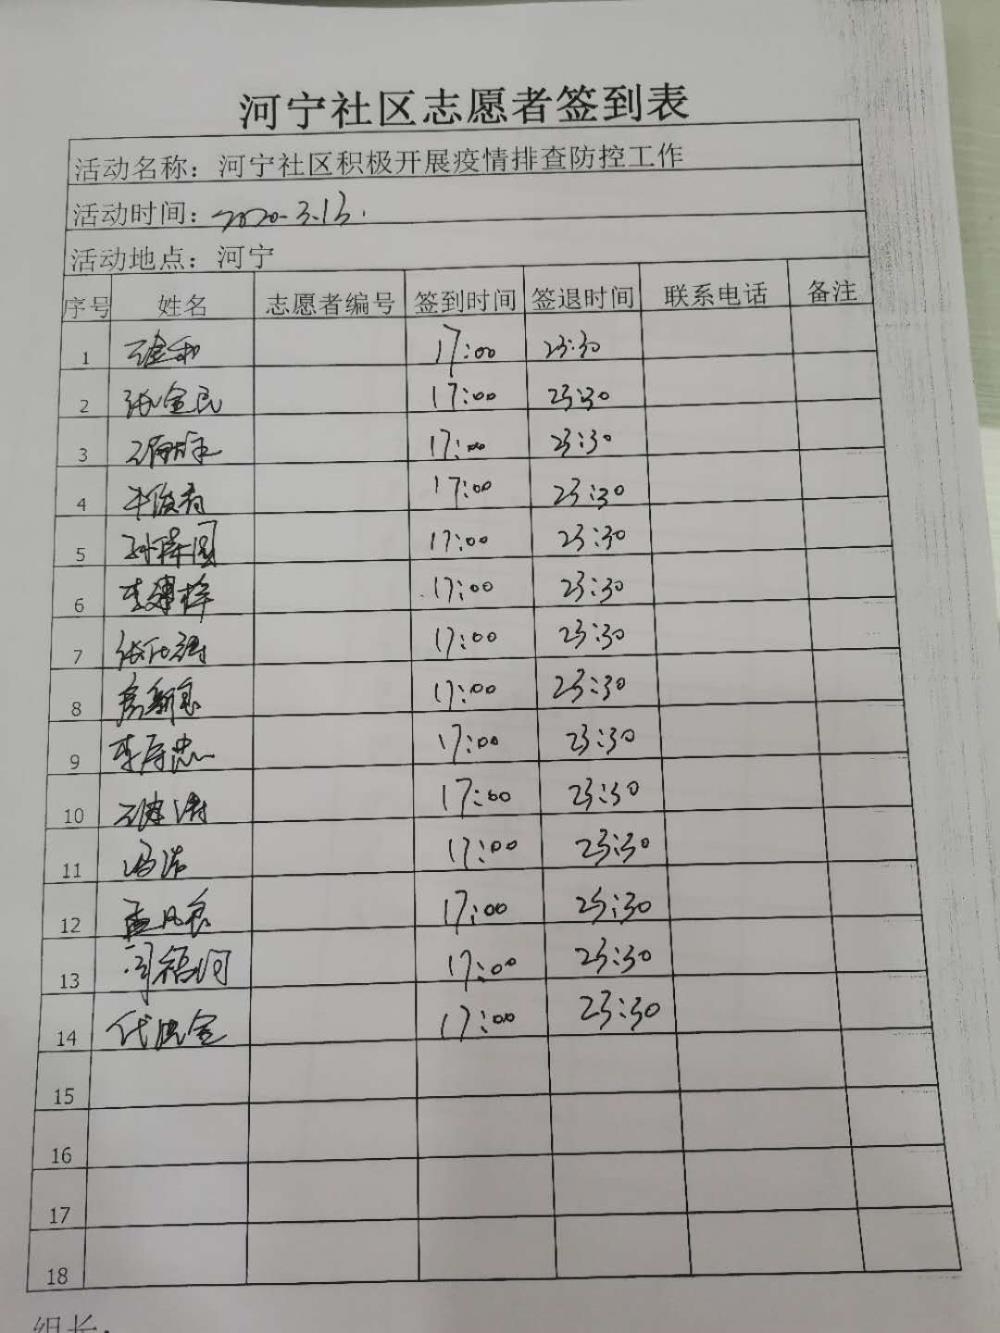 河宁社区志愿者签到表
活动名称：河宁社区积极开展疫情排查防控工作
活动时间：2020.3.13.
活动地点：河宁
序号 姓名 志愿者编号 签到时间 签退时间 联系电话 备注
1 17:00 23:30
2 张金民 17:00 23:30
3 17:00 23:30
4 17:00 23:30
5 17:00 23:30
6 17:00 23:30
7 17:00 23:30
8 17:00 23:30
9 17:00 23:30
10 17:00 23:30
11 冯浩 17:00 23:30
12 孟凡良 17:00 23:30
13 17:00 23:30
14 17:00 23:30
15
16
17
18
组长：